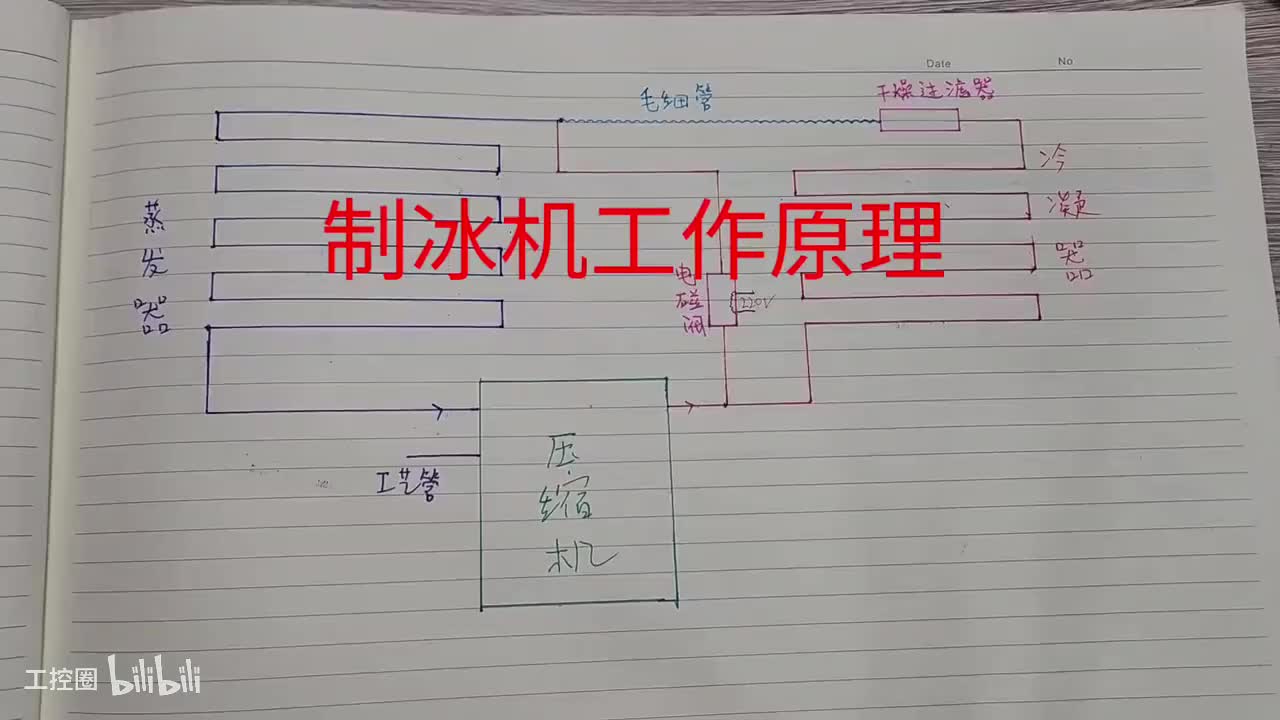 Date
No
毛细管
干燥过滤器
冷凝器
蒸发器
制冰机工作原理
电磁阀
220V
压缩机
工艺管
工控圈 bilibili